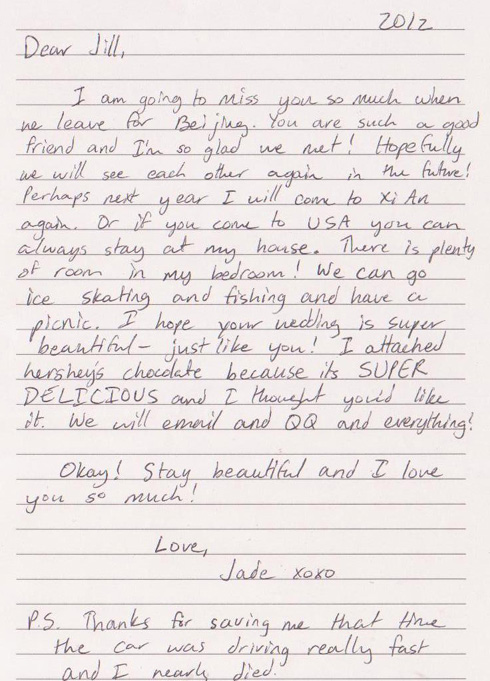 2012
Dear Jill,
I am going to miss you so much when
we leave for Beijing. You are such a good
friend and I'm so glad we met! Hopefully
we will see each other again in the future!
Perhaps next year I will come to Xi An
again. Or if you come to USA you can
always stay at my house. There is plenty
of room in my bedroom! We can go
ice skating and fishing and have a
picnic. I hope your wedding is super
beautiful - just like you! I attached
hershey's chocolate because its SUPER
DELICIOUS and I thought you'd like
it. We will email and QQ and everything!
Okay! Stay beautiful and I love
you so much!
Love,
Jade xoxo
P.S. Thanks for saving me that time
the car was driving really fast
and I nearly died.